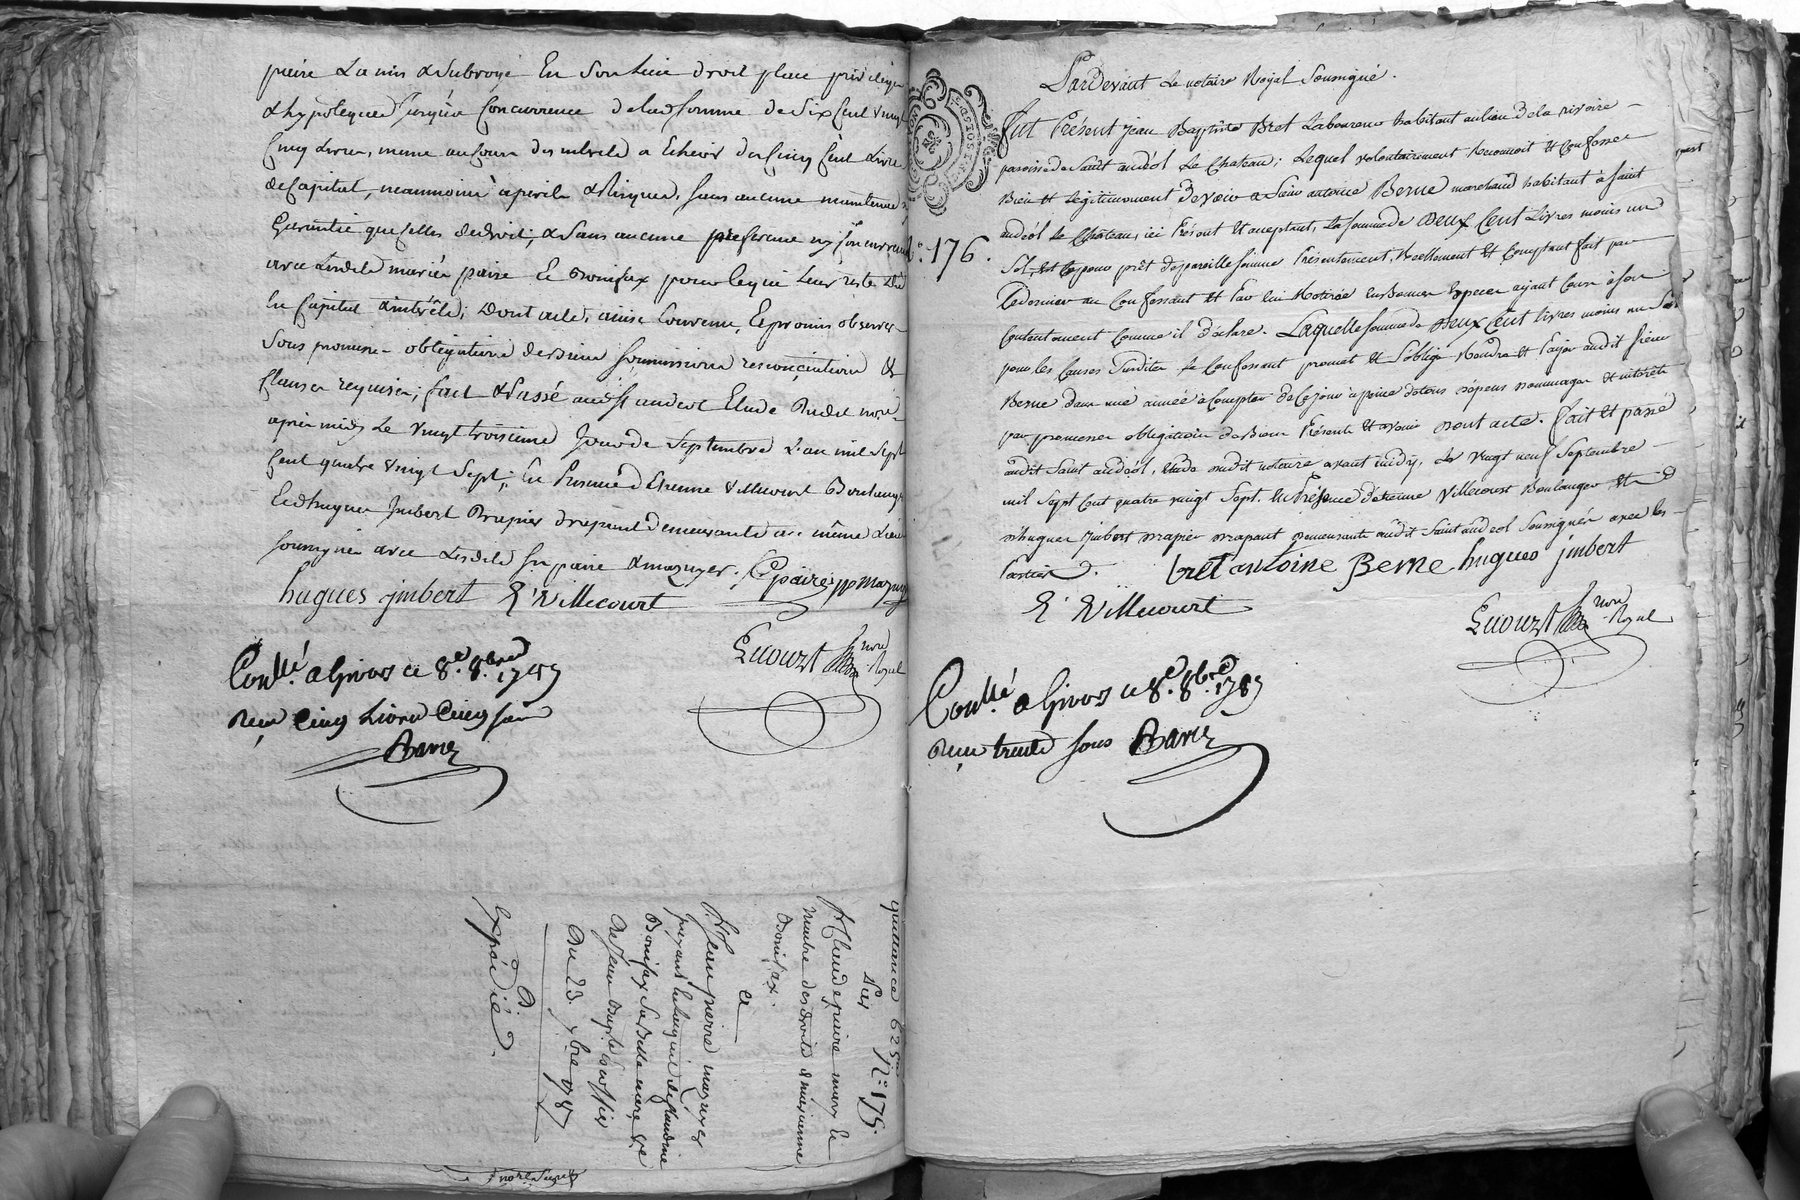 paire La mis & Subrogé En Son Lieu droit place privilege
& hypoteques Jusqu'a Concurrence de lad. somme de Six Cent vingt
Cinq Livres, meme au cours des interets a Echeoir des Cinq Cent Livres
de Capital, neanmoins a perils & Risques, sans aucune
Garantie que celles de droit; & Sans aucune preference ny concurrence
avec Lesdits mariés paire Et Bonifax pour ce qui Leur reste du
En Capital & interêts; Dont acte, ainsi Convenu, Et promis observer
Sous promesse obligations de Biens soumissions renonciations &
Clauses requises; fait & Passé audit St andeol Etude Dudit nore
après midy Le vingt troisième Jour de Septembre L'an mil Sept
Cent quatre vingt Sept; En Presence d'Etienne Villecourt Boulanger
Et d'hugues Imbert Drapier drapant demeurants au même Lieu
soussignés avec Lesdits Srs paire & mazuyer.
hugues jmbert E. Villecourt Cpaire jp mazuyer
Conllé a Givors ce 8e. 8bre 1787
Reçu Cinq Livres Cinq sous
Barre
nore Royal
quittance 625
Par N° 175.
Sr Claude paire mary Et
Maitre des droits de marianne
Bonifax.
a
Sr Jean pierre mazuyer
payant En l'acquit de Claudine
Bonifax Sa Belle mere & Ve
de Jean Bapte
Du 23. 7bre 1787
expédié
Par Devant Le notaire Royal Soussigné.
N°. 176.
Fut Présent jean Baptiste Bret Laboureur habitant au lieu de la rivoire
paroisse de Saint andéol Le Chateau; Lequel volontairement Reconnoit Et Confesse
Bien Et Légitimement Devoir a Sieur antoine Berne marchand habitant a Saint
andéol Le Château, ici Présent Et acceptant, La somme de Deux Cent Livres moins un
Sol, pour prêt de pareille somme Présentement, Réellement Et Comptant fait par
Ce dernier au Confessant Et Par Lui Retirée En Bonnes Especes ayant Cours à son
Contentement Comme il Déclare. Laquelle somme de Deux Cent livres moins un Sol
pour les Causes Susdites le Confessant promet Et S'oblige Rendre Et Payer audit sieur
Berne dans une année à Compter de Ce jour à peine de tous dépens dommages Et interêts
par promesse obligation de Biens Présents Et avenir Dont acte. Fait Et passé
audit Saint andéol, Etude dudit notaire avant midy, Le vingt neuf Septembre
mil Sept Cent quatre vingt Sept. En Présence d'etienne Villecourt Boulanger Et
d'hugues jmbert drapier drapant demeurants audit Saint andéol Soussignés avec les
Parties.
bret antoine Berne hugues jmbert
E. Villecourt
nore Royal
Conllé a Givors ce 8e. 8bre. 1787
Reçu trente sous Barre